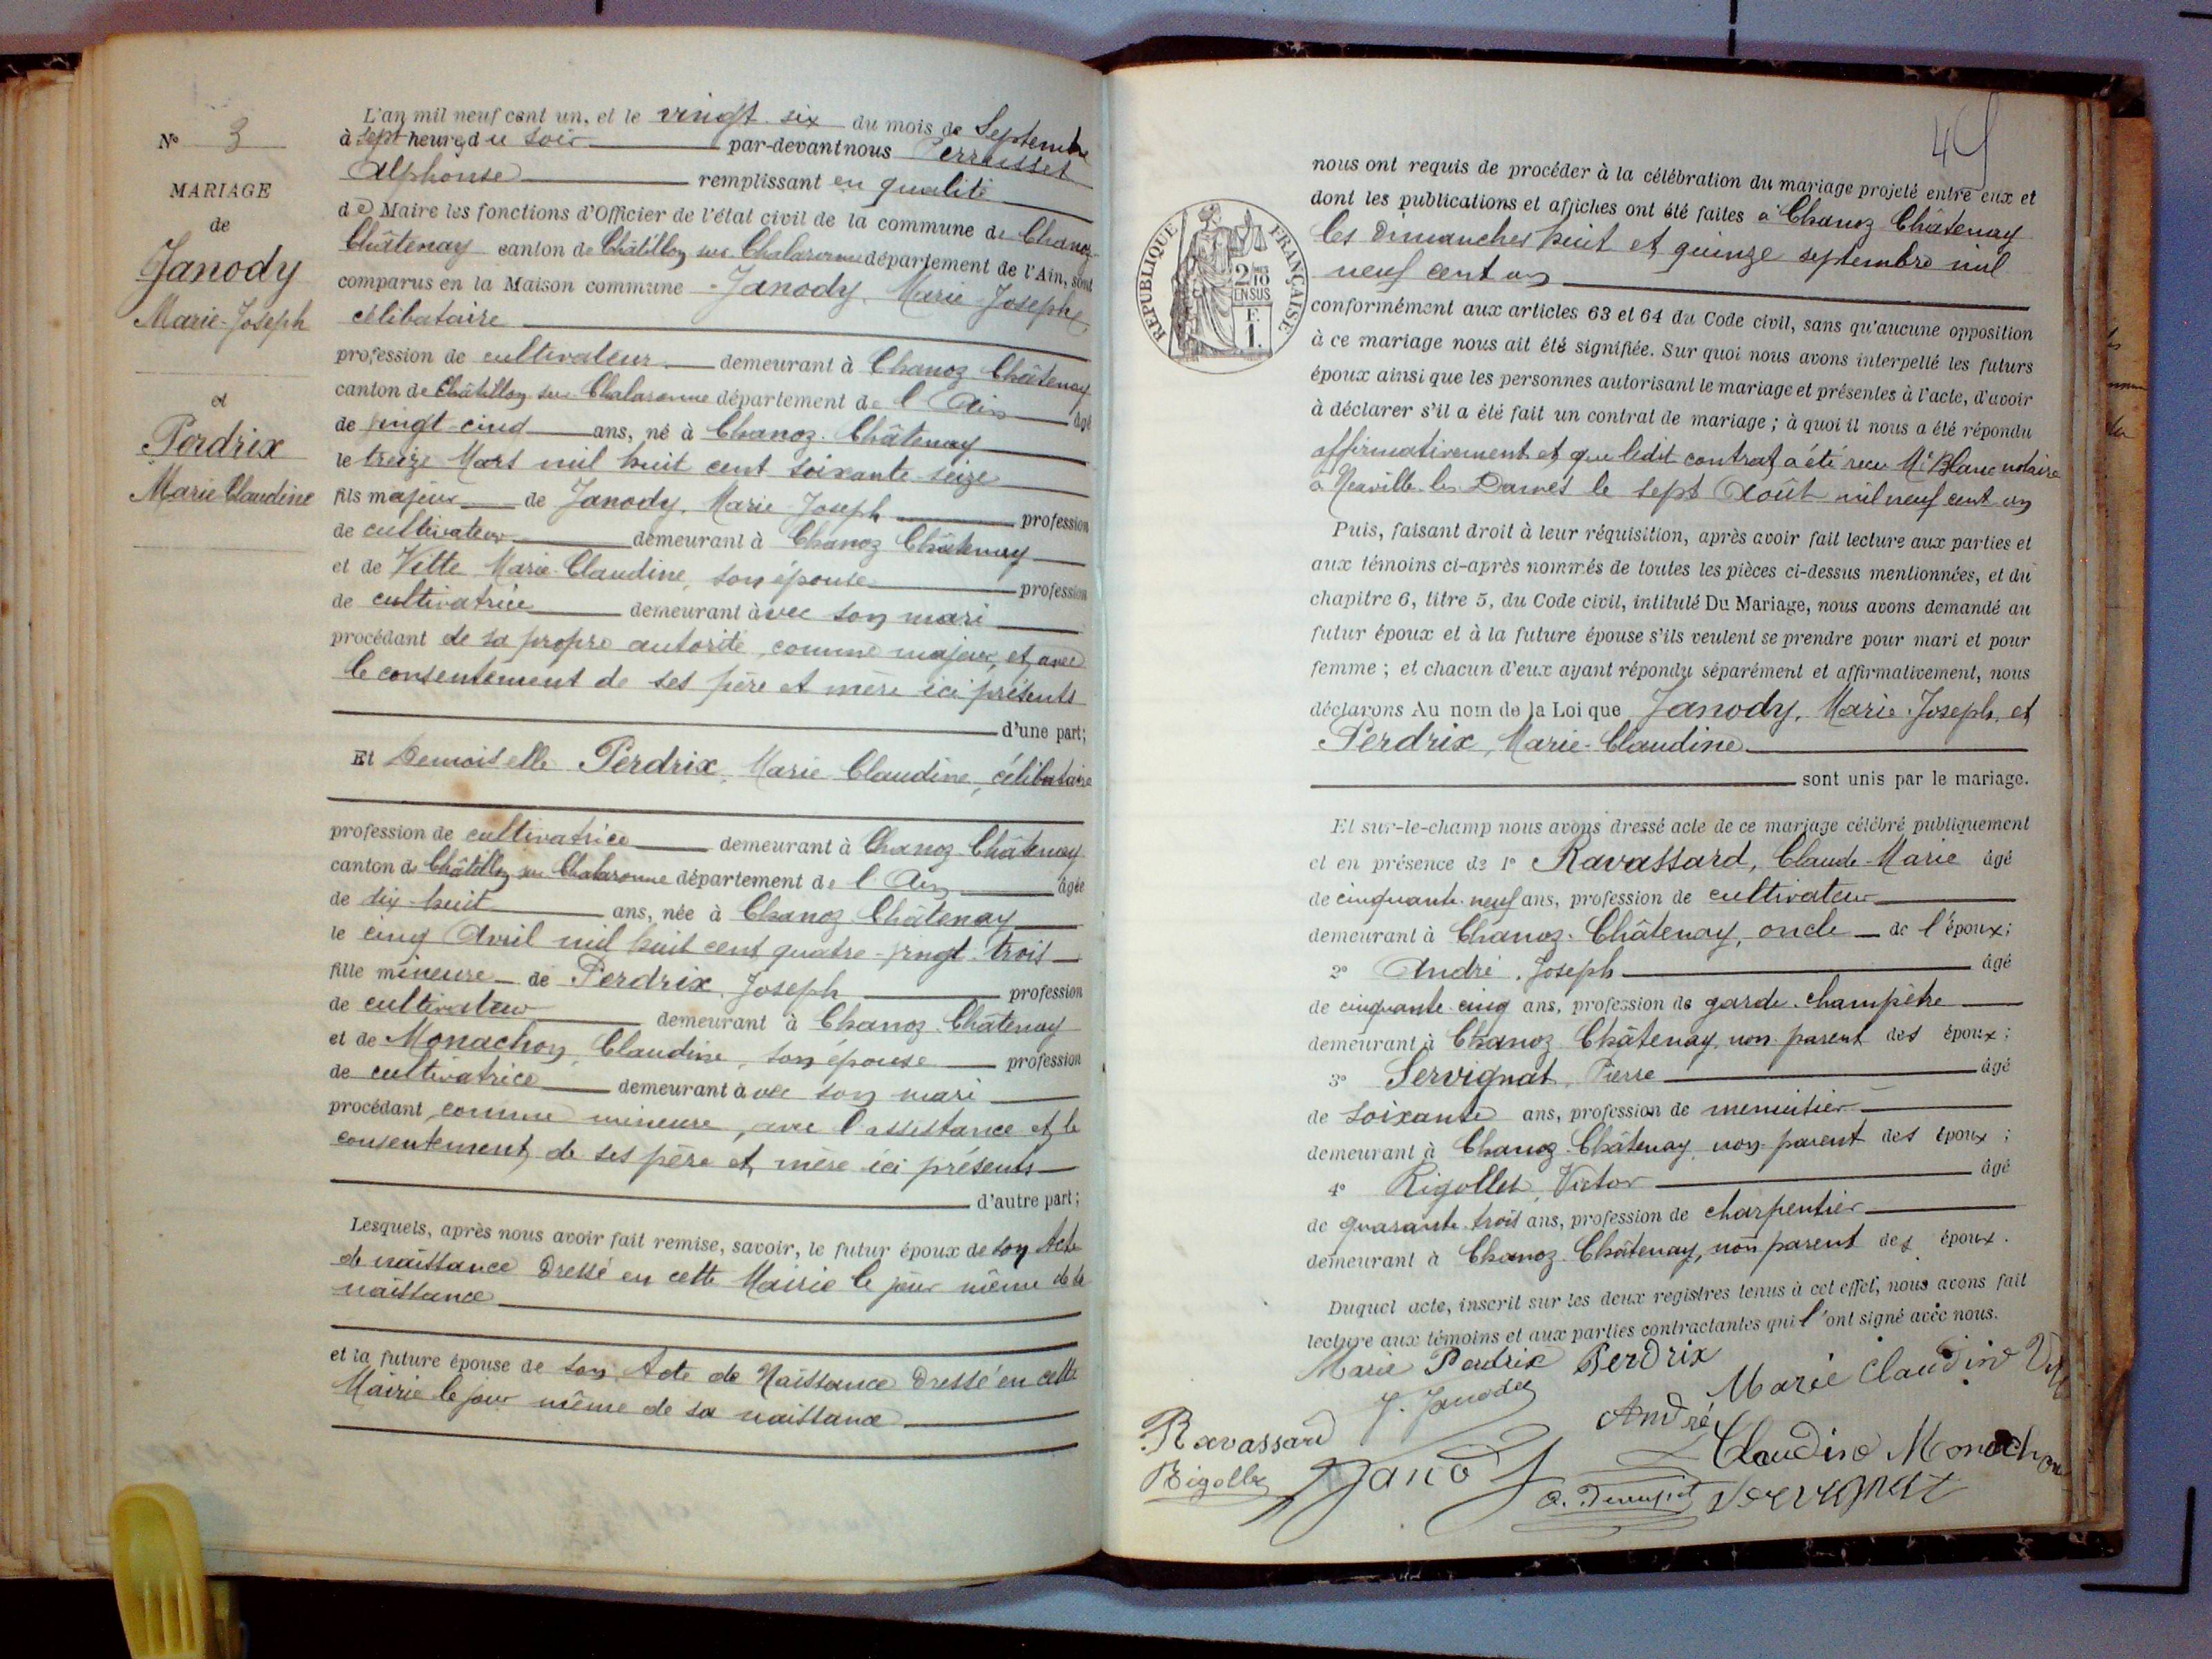 N° 3
MARIAGE
de
Janody
Marie-Joseph
et
Perdrix
Marie Claudine
L'an mil neuf cent un, et le vingt-six du mois de Septembre
à sept heures du soir par-devant nous Perrusset
Alphonse remplissant en qualité
de Maire les fonctions d'Officier de l'état civil de la commune de Chanoz-
Châtenay canton de Châtillon sur Chalaronne département de l'Ain, sont
comparus en la Maison commune Janody, Marie-Joseph,
célibataire
profession de cultivateur demeurant à Chanoz-Châtenay
canton de Châtillon sur Chalaronne département de l'Ain âgé
de vingt-cinq ans, né à Chanoz-Châtenay
le treize Mars mil huit cent soixante-seize
fils majeur de Janody, Marie-Joseph profession
de cultivateur demeurant à Chanoz Châtenay
et de Vitte Marie-Claudine, son épouse profession
de cultivatrice demeurant avec son mari
procédant de sa propre autorité, comme majeur, et avec
le consentement de ses père et mère ici présents
d'une part;
Et Demoiselle Perdrix, Marie Claudine, célibataire
profession de cultivatrice demeurant à Chanoz-Châtenay
canton de Châtillon sur Chalaronne département de l'Ain âgée
de dix-huit ans, née à Chanoz Châtenay
le cinq Avril mil huit cent quatre-vingt-trois
fille mineure de Perdrix, Joseph profession
de cultivateur demeurant à Chanoz-Châtenay
et de Monachon, Claudine, son épouse profession
de cultivatrice demeurant avec son mari
procédant comme mineure, avec l'assistance et le
consentement de ses père et mère ici présents
d'autre part;
Lesquels, après nous avoir fait remise, savoir, le futur époux de son Acte
de naissance dressé en cette Mairie le jour même de sa
naissance
et la future épouse de son Acte de Naissance dressé en cette
Mairie le jour même de sa naissance
REPUBLIQUE FRANÇAISE
2/10
EN SUS
F.
1.
nous ont requis de procéder à la célébration du mariage projeté entre eux et
dont les publications et affiches ont été faites à Chanoz Châtenay
les dimanches huit et quinze septembre mil
neuf cent un
conformément aux articles 63 et 64 du Code civil, sans qu'aucune opposition
à ce mariage nous ait été signifiée. Sur quoi nous avons interpellé les futurs
époux ainsi que les personnes autorisant le mariage et présentes à l'acte, d'avoir
à déclarer s'il a été fait un contrat de mariage; à quoi il nous a été répondu
affirmativement et que ledit contrat a été reçu Me Blanc notaire
à Neuville-les-Dames le sept Août mil neuf cent un
Puis, faisant droit à leur réquisition, après avoir fait lecture aux parties et
aux témoins ci-après nommés de toutes les pièces ci-dessus mentionnées, et du
chapitre 6, titre 5, du Code civil, intitulé Du Mariage, nous avons demandé au
futur époux et à la future épouse s'ils veulent se prendre pour mari et pour
femme; et chacun d'eux ayant répondu séparément et affirmativement, nous
déclarons Au nom de la Loi que Janody, Marie-Joseph, et
Perdrix, Marie-Claudine
sont unis par le mariage.
Et sur-le-champ nous avons dressé acte de ce mariage célébré publiquement
et en présence de 1° Ravassard, Claude-Marie âgé
de cinquante-neuf ans, profession de cultivateur
demeurant à Chanoz-Châtenay, oncle de l'époux;
2° André, Joseph âgé
de cinquante-cinq ans, profession de garde-champêtre
demeurant à Chanoz Châtenay, non parent des époux;
3° Servignat, Pierre âgé
de soixante ans, profession de menuisier
demeurant à Chanoz-Châtenay non parent des époux;
4° Rigollet, Victor âgé
de quarante-trois ans, profession de charpentier
demeurant à Chanoz-Châtenay, non parent des époux.
Duquel acte, inscrit sur les deux registres tenus à cet effet, nous avons fait
lecture aux témoins et aux parties contractantes qui l'ont signé avec nous.
Marie Perdrix Perdrix
Marie Claudine
J. Janody
André
Ravassard
Claudine Monachon
Rigollet
Servignat